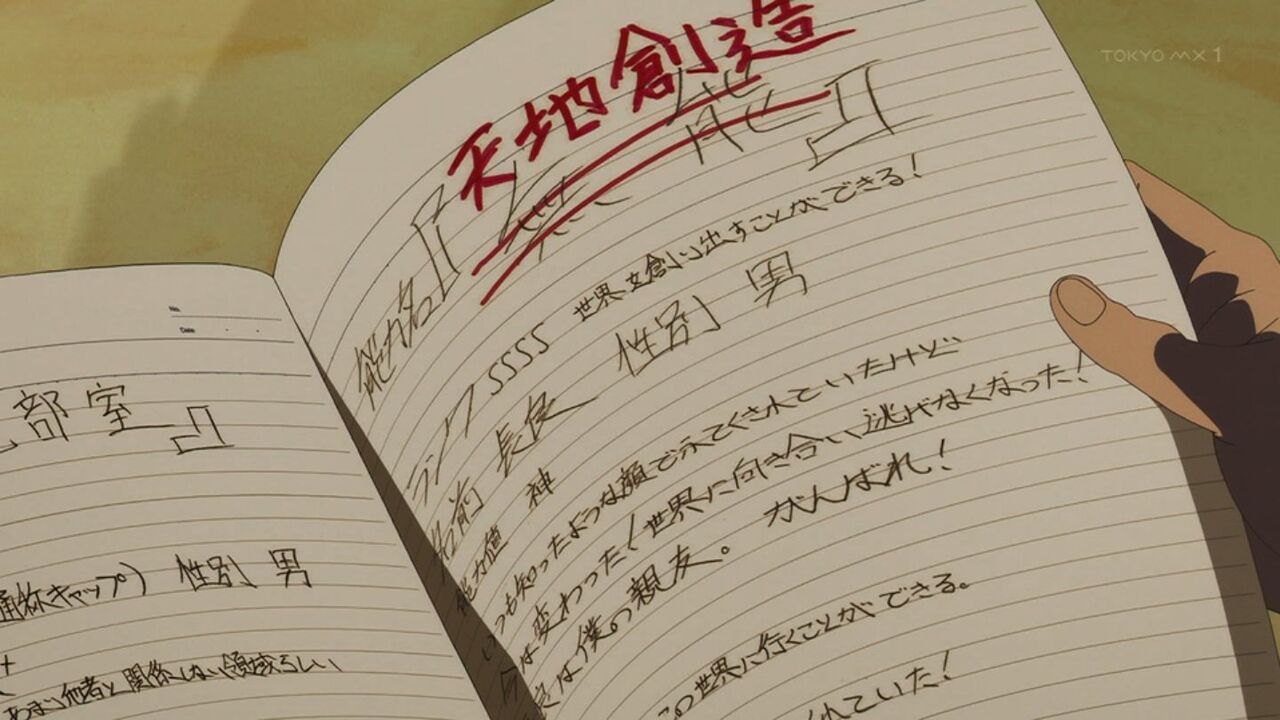 TOKYO MX1
No.
Date
部室』
通称キャップ) 性別 男
あまり他者と関係しない領域らしい
天地創造
能力名『無能』
世界を創り出すことができる!
ランク SSSS
名前 長良 性別 男
能力値 神
いつも知ったような顔でふてくされていたけど
今は変わった!世界に向き合い逃げなくなった!
長良は僕の親友。 がんばれ!
この世界に行くことができる。
れていた!